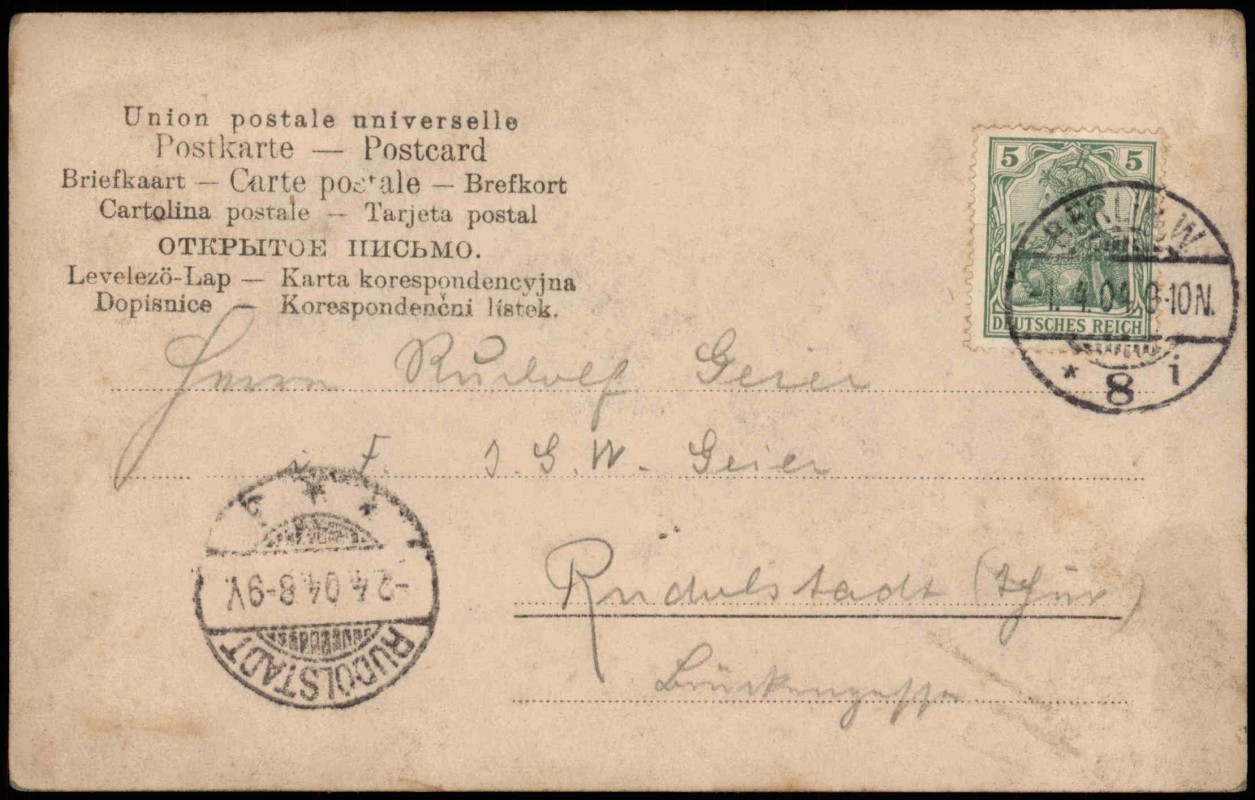 Union postale universelle
Postkarte — Postcard
Briefkaart — Carte postale — Brefkort
Cartolina postale — Tarjeta postal
ОТКРЫТОЕ ПИСЬМО.
Levelezö-Lap — Karta korespondencyjna
Dopisnice — Korespondenčni lístek.
5 5
DEUTSCHES REICH
BERLIN.W
-1.4.04.8-10N.
* 8 i
Herrn Rudolf Geier
J. G. W. Geier
Rudolstadt (Thür)
Brückengasse
-2.4.04.8-9V.
RUDOLSTADT